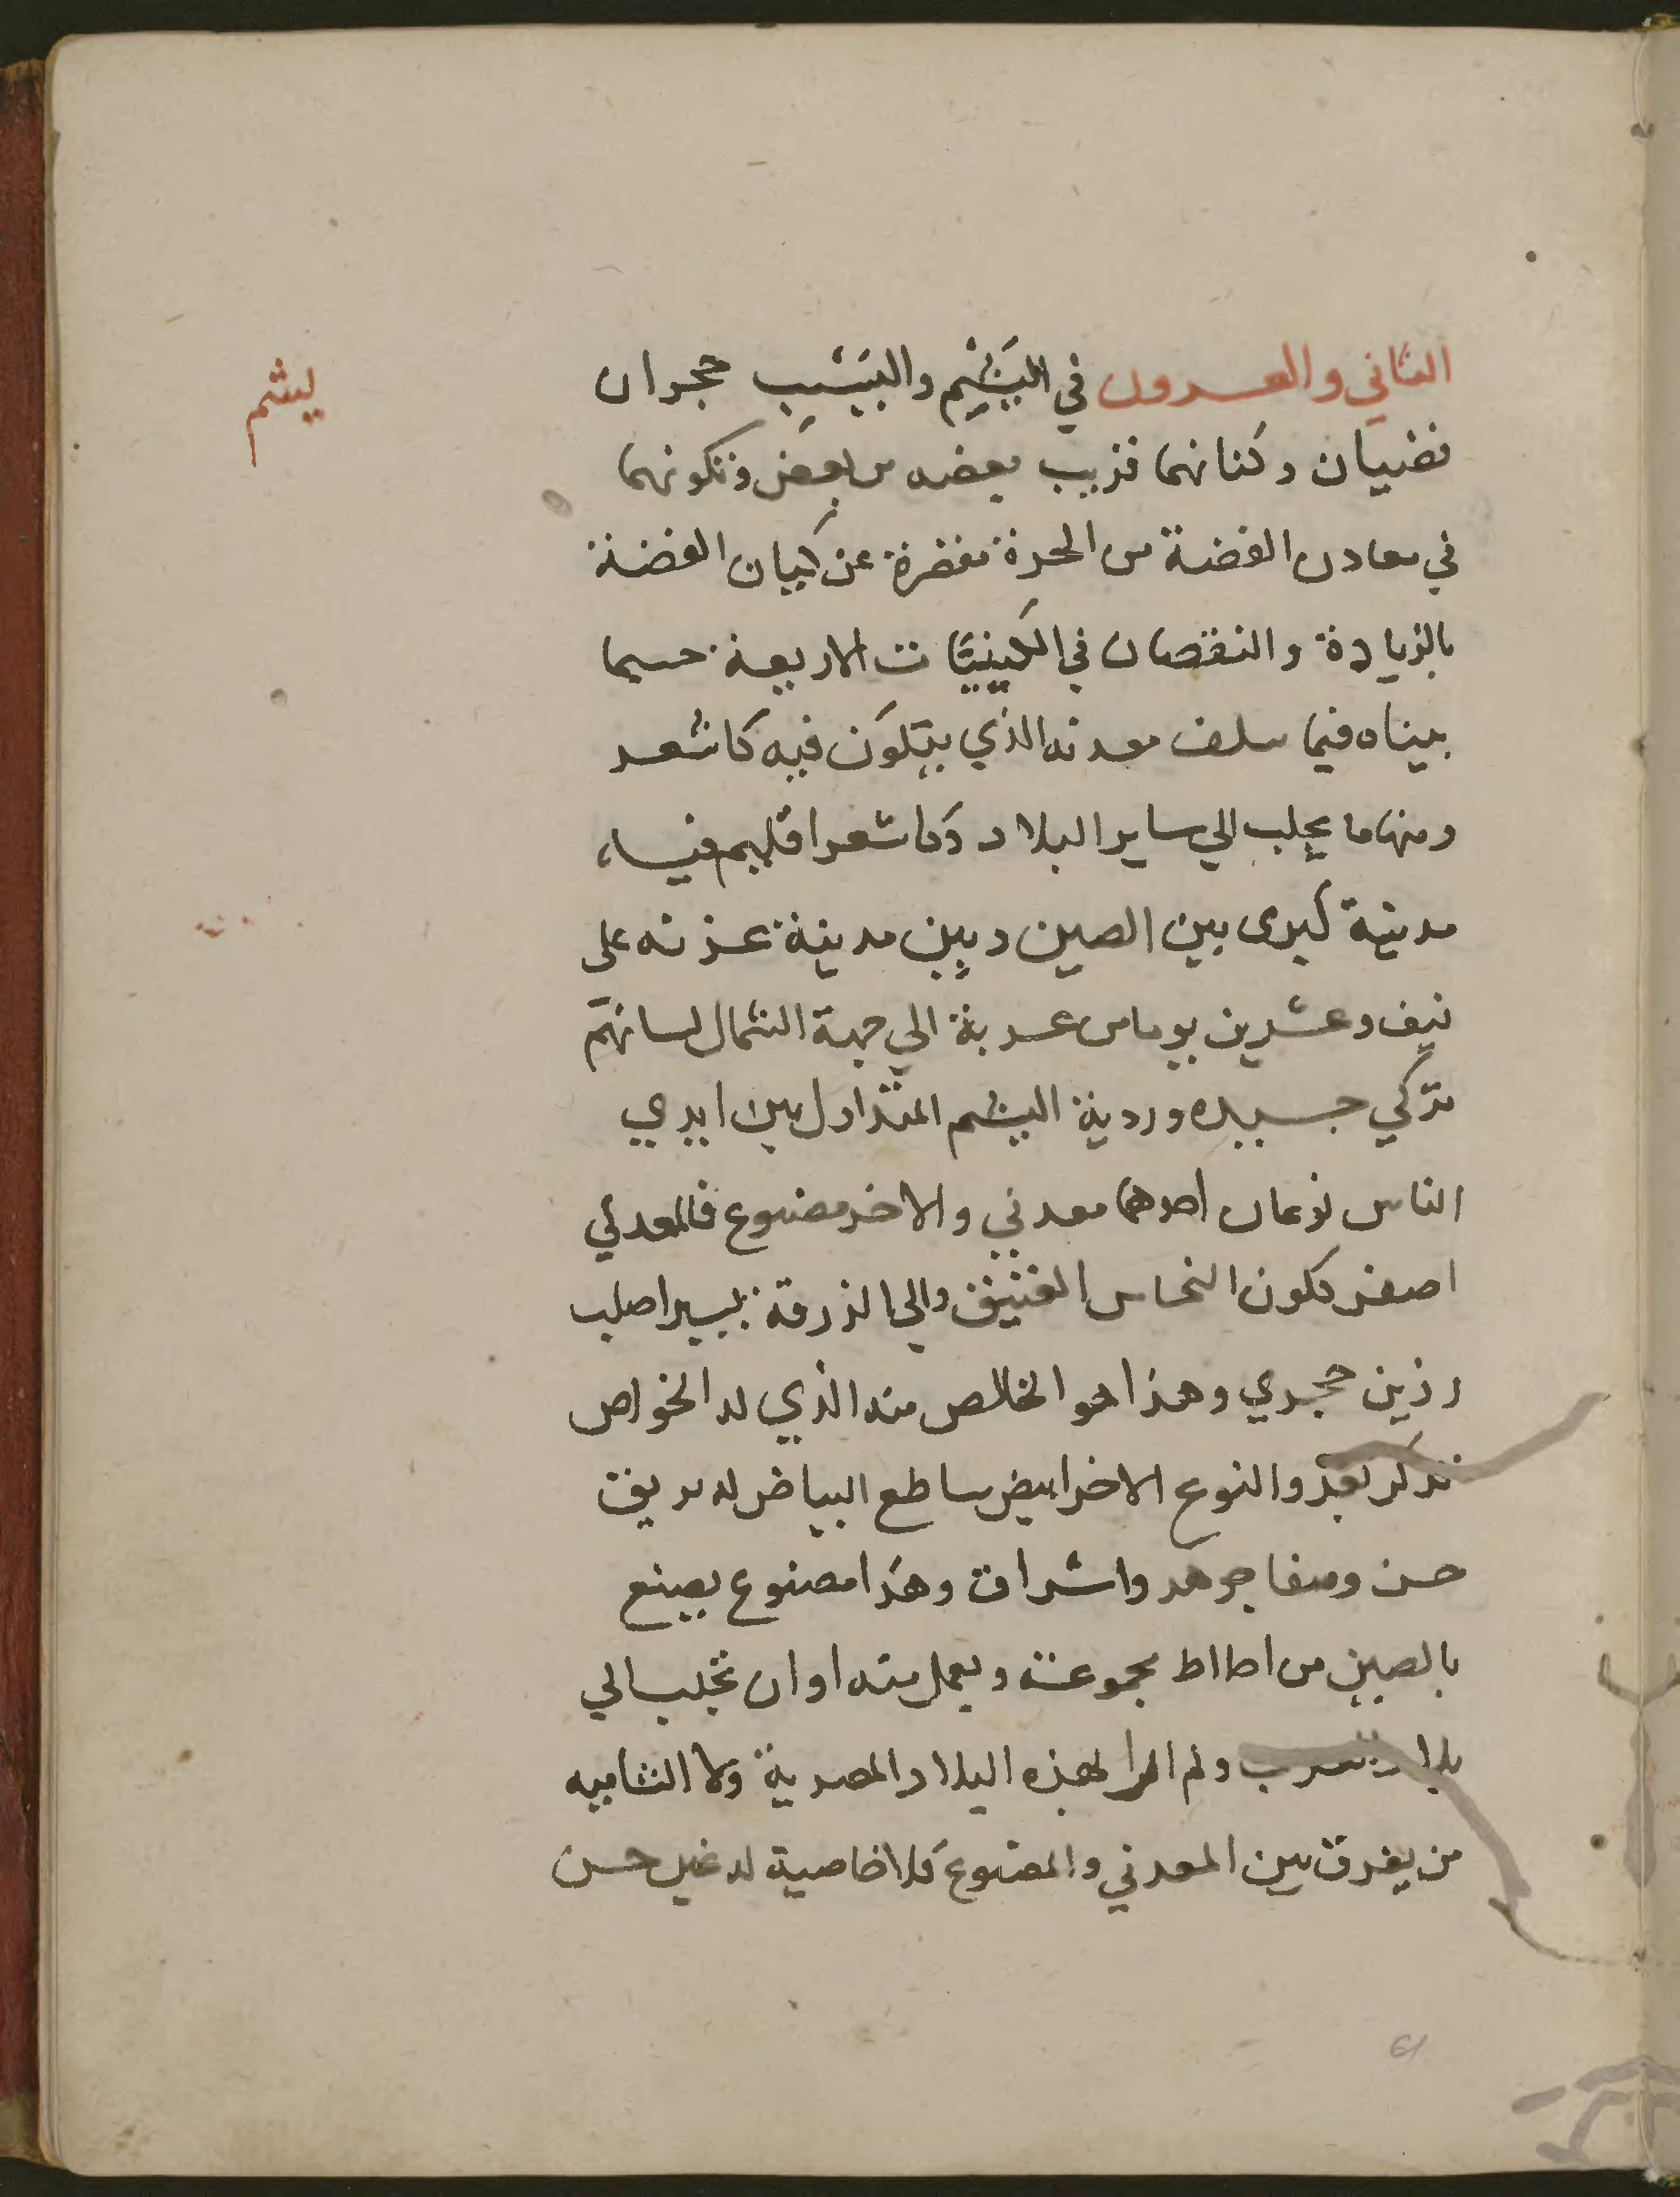 يشم
الثاني والعسرون في اليَشْم واليَشْب حجران
فضيان وكيانهما قريب بعضه من بعض وتكونهما
في معادن الفضة من الحرة مقصرة عن كيان الفضة
بالزيادة والنقصان في الكيفيات الاربعة حسبما
بيناه فيما سلف معدنه الذي يتكون فيه كاشعر
ومنها ما يجلب الي ساير البلاد وكاشعر اقليم فيه
مدينة كبرى بين الصين وبين مدينة غزنه على
نيف وعشرين يوما من غزنة الي جهة الشمال لسانهم
تركي جيده ورديه اليشم المتداول بين ايدي
الناس نوعان احدهما معدني والاخر مصنوع فالمعدني
اصفر كلون النحاس العتيق والي الزرقة يسير اصلب
رزين حجري وهذا هو الخالص منه الذي له الخواص
تذكر بعد والنوع الاخر ابيض ساطع البياض له بريق
حسن وصفا جوهر واشراق وهذا مصنوع يصنع
بالصين من اخلاط مجموعة ويعمل منه اوان تجلب الي
بلاد العرب ولم ار بهذه البلاد المصرية ولا الشاميه
من يفرق بين المعدني والمصنوع فلا خاصية له غير حسن
61